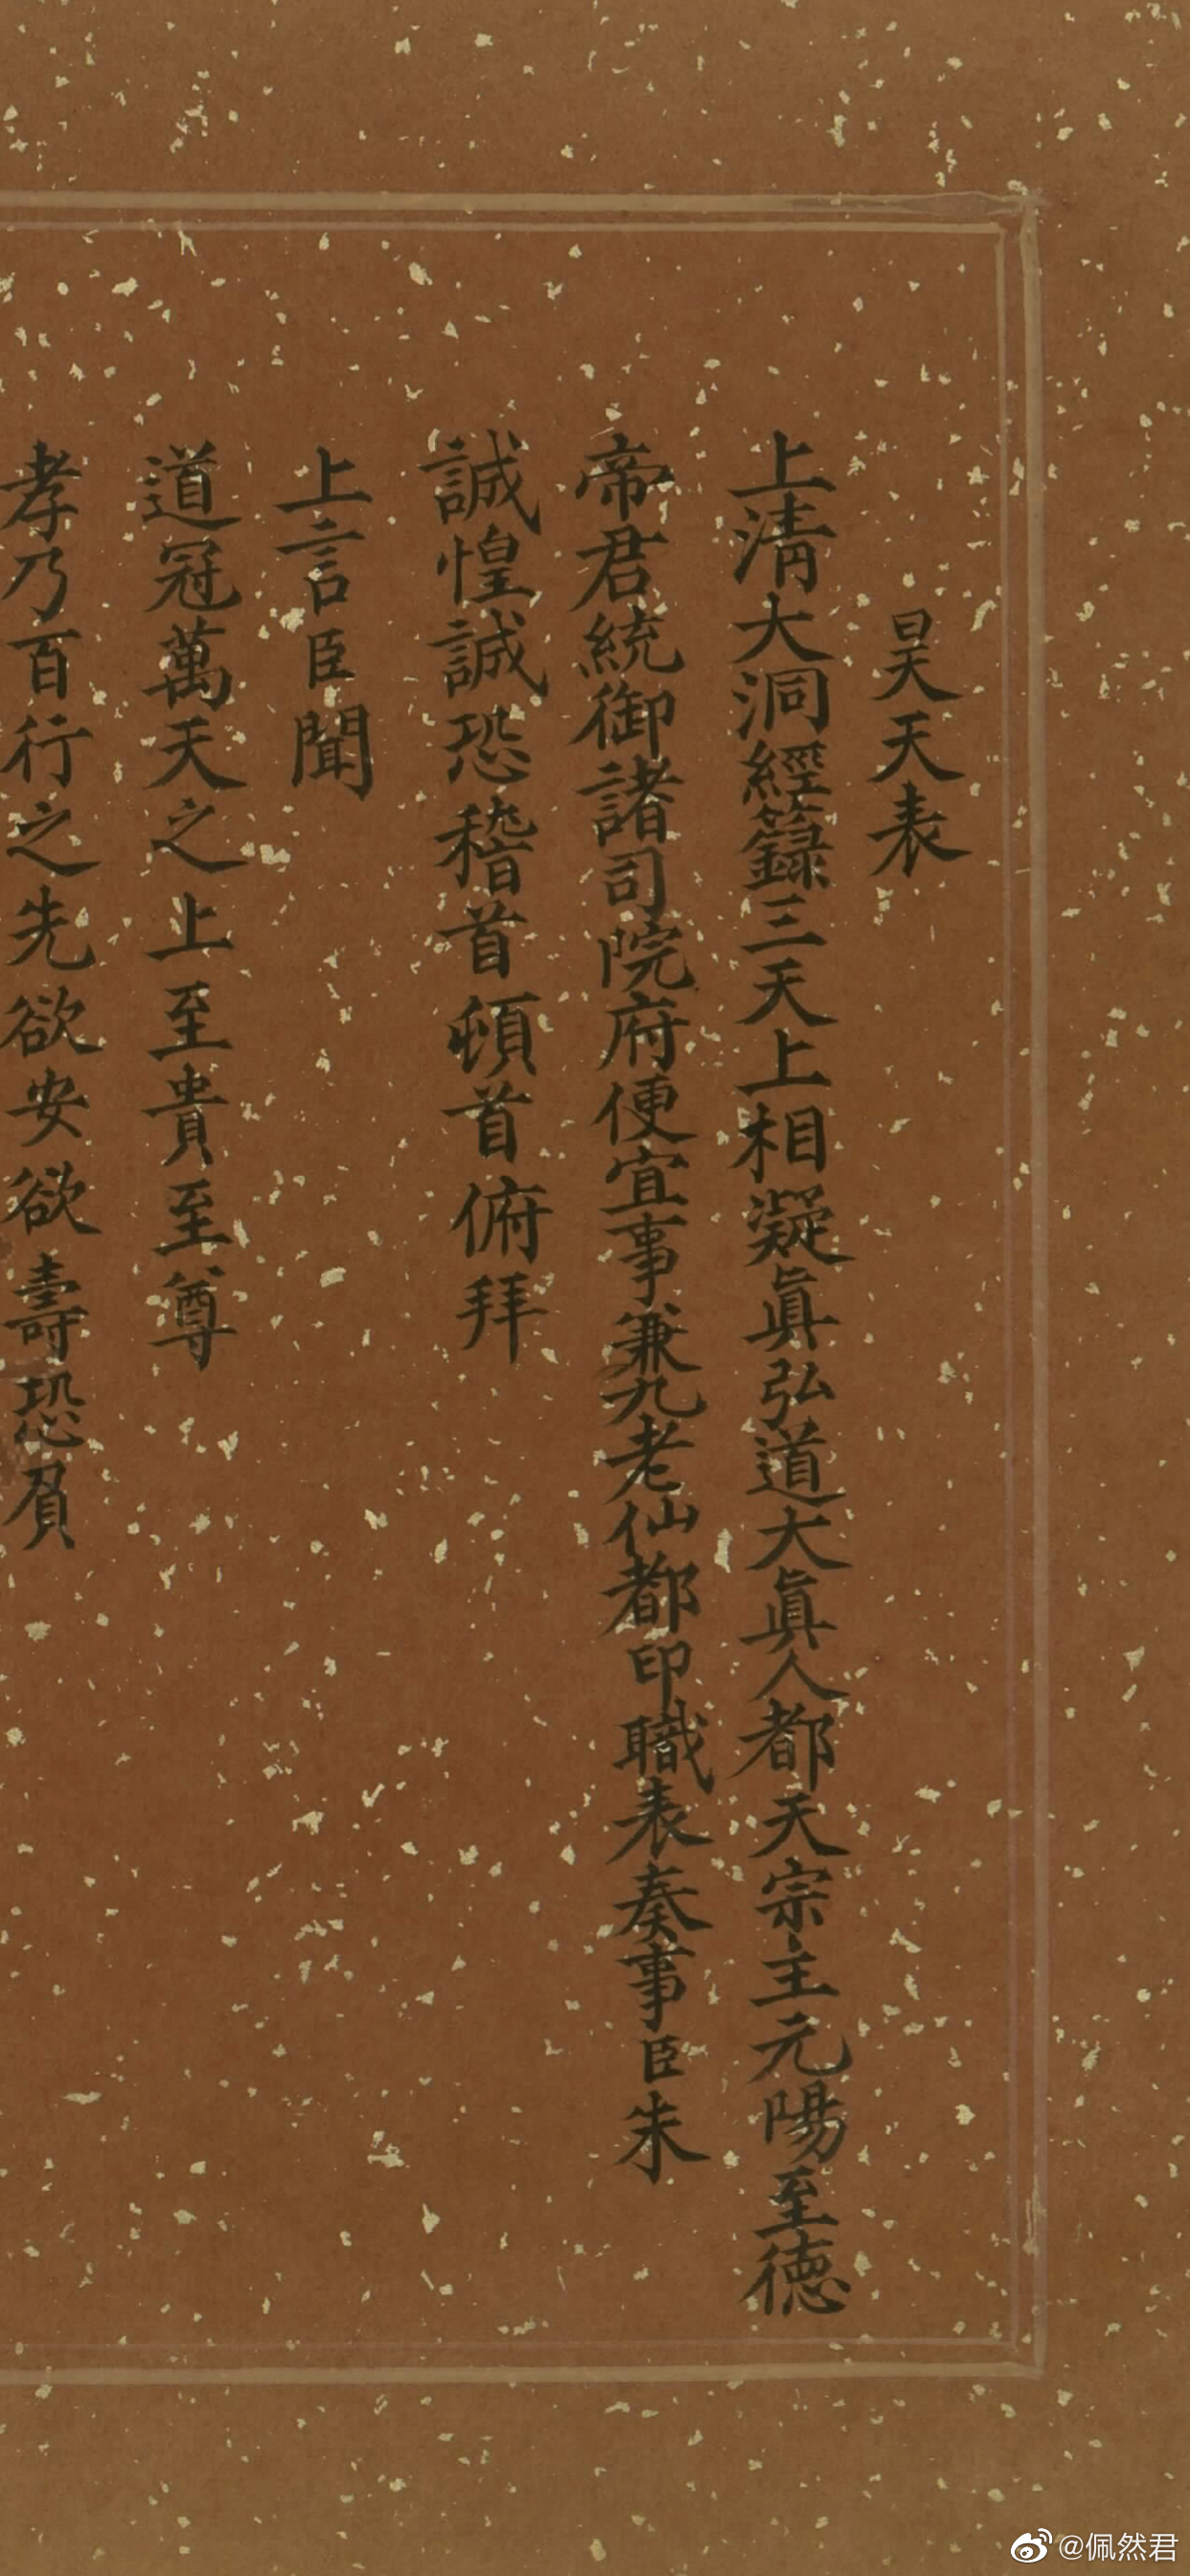 昊天表
上清大洞經籙三天上相凝眞弘道大眞人都天宗主元陽至德
帝君統御諸司院府便宜事兼九老仙都印職表奏事臣朱
誠惶誠恐稽首頓首俯拜
上言臣聞
道冠萬天之上至貴至尊
孝乃百行之先欲安欲壽恐負
@佩然君